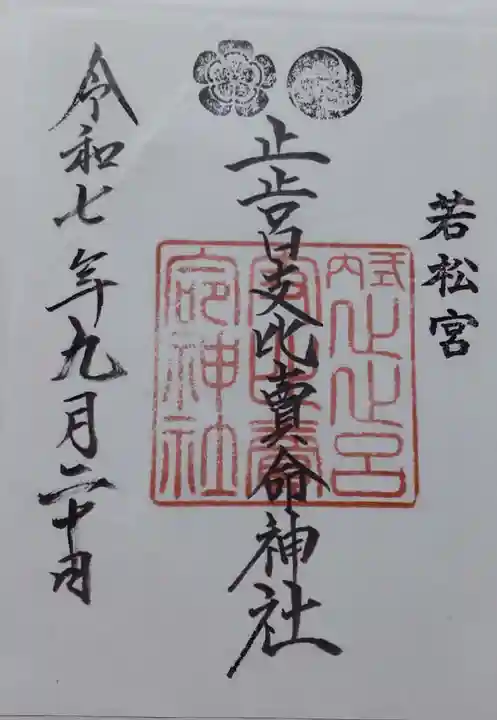 若松宮
止止呂支比賣命神社
式内止止呂
支比賣
命神社
令和七年九月二十日